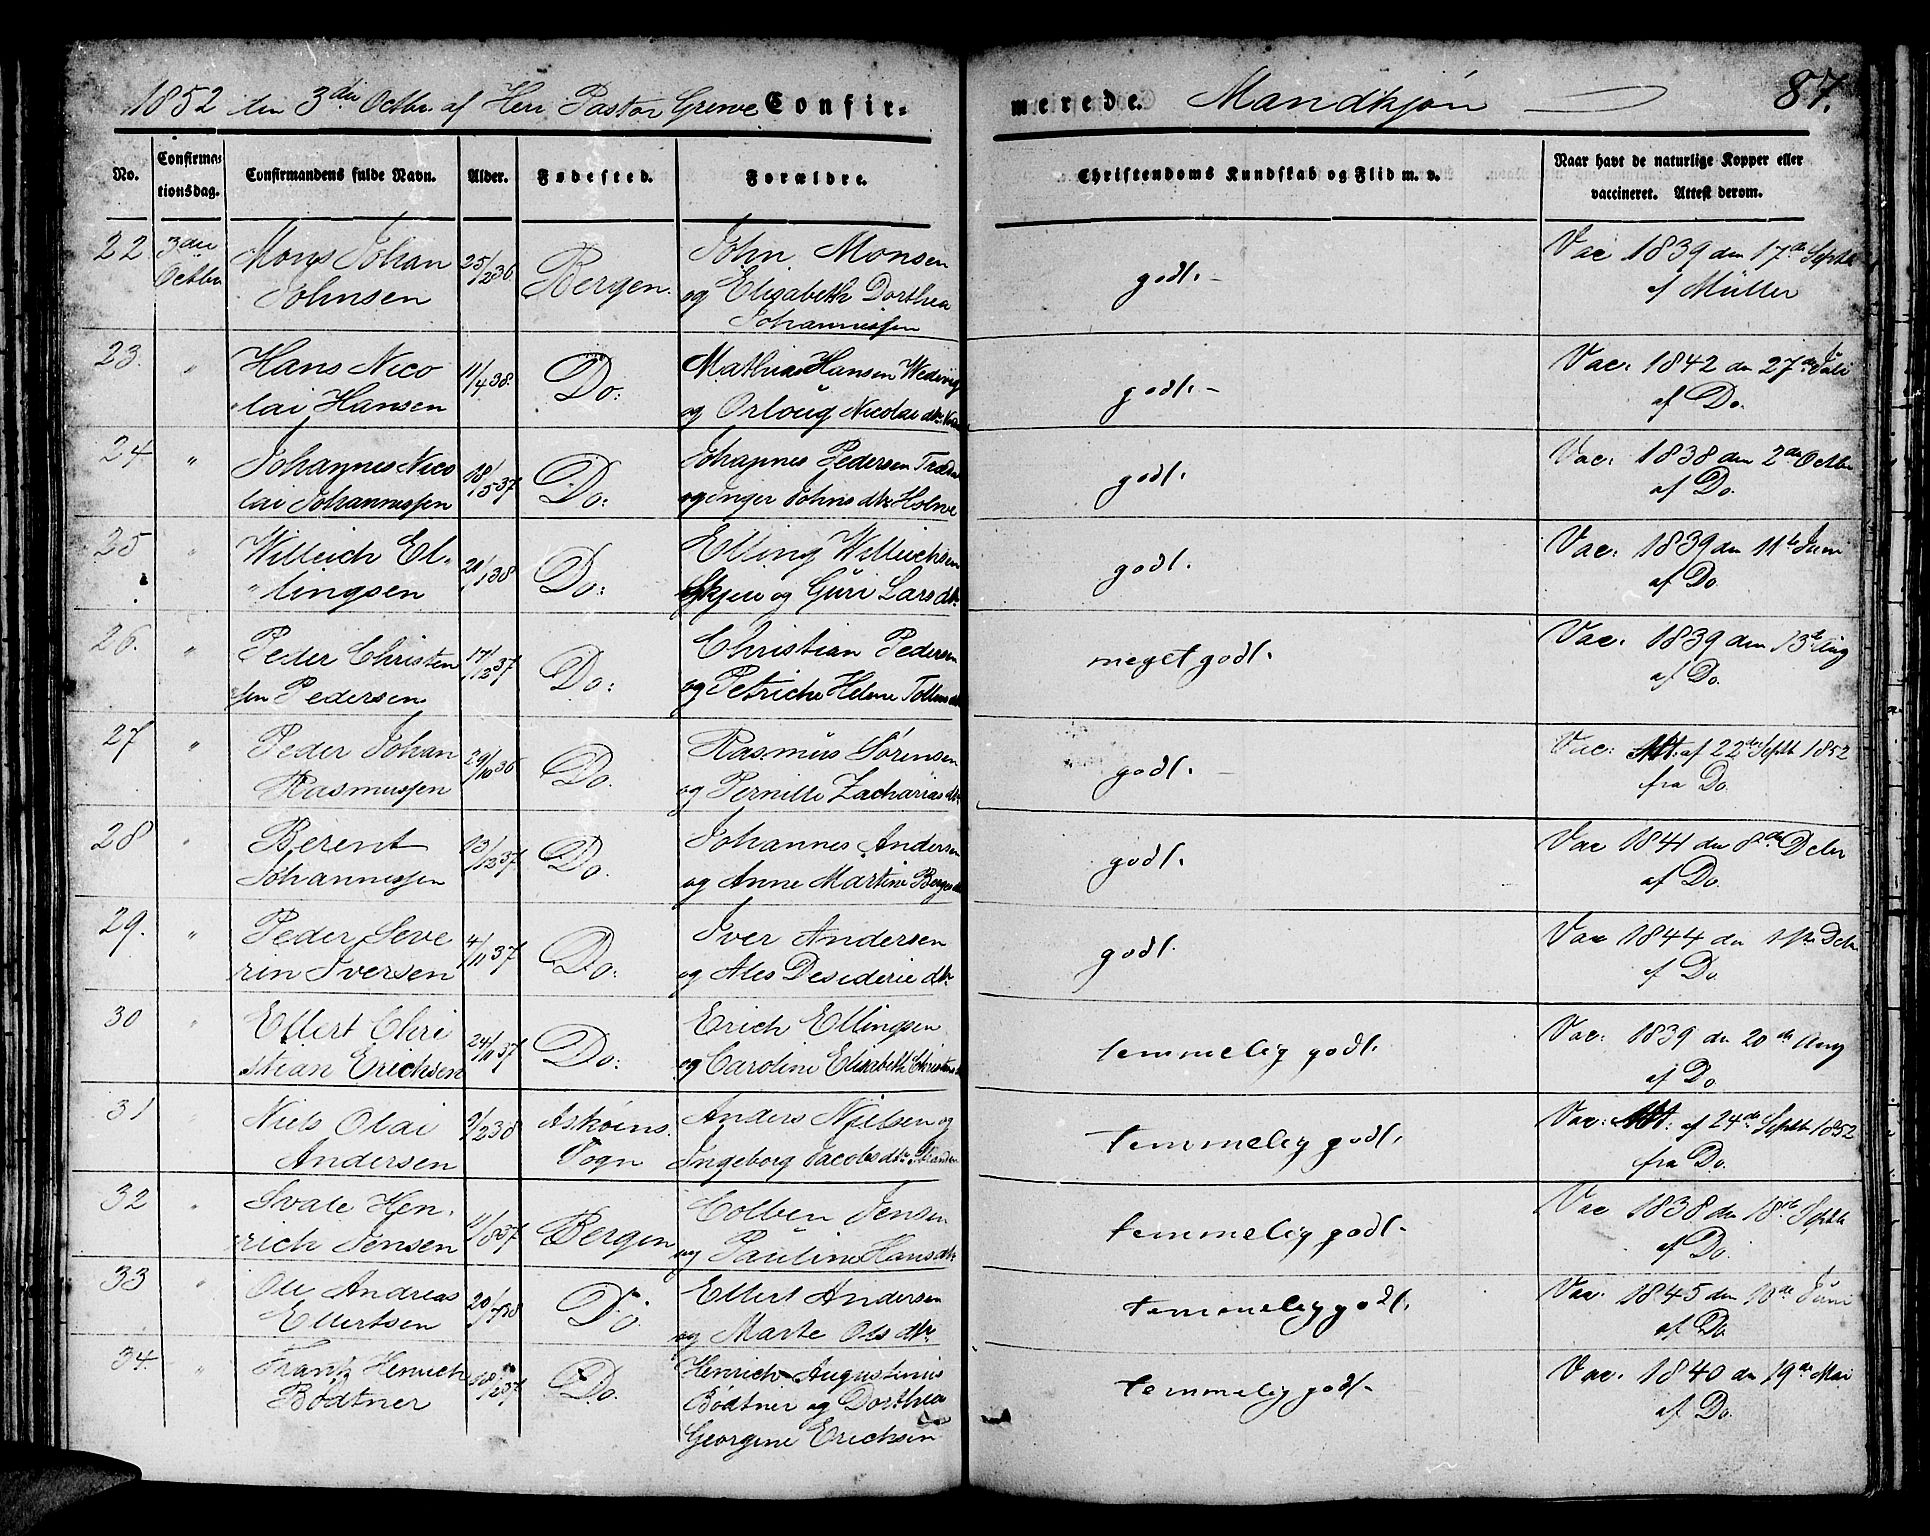 1852 den 3die Octbr af Herr Pastor Greve Confir-
merede. Mandkjøn 87.
No. Confirma-tionsdag. Confirmandens fulde Navn. Alder. Fødested. Forældre. Christendoms Kundskab og Flid m. v. Naar havt de naturlige Kopper eller vaccineret. Attest derom.
22 3die Mons Johan 25/2 36 Bergen. John Monsen godt. Vac 1839 den 17de Septb
Octbr Johnsen og Elisabeth Dorthea af Müller
Johannessen
23. " Hans Nico 11/4 38. Do: Mathias Hansen godt. Vac: 1842 den 27de Juli
lai Hansen og Nicolai dtr. af Do.
24 " Johannes Nico 18/5 37 Do: Johannes Pedersen godt. Vac: 1838 den 2den Octbr
lai Johannessen og Inger Johns dtr. af Do.
25 " Willeich El- 21/1 38 Do: Elling Willeichsen godt. Vac: 1839 den 11te Juni
lingsen og Guri Lars dtr. af Do.
26. " Peder Christen 17/12 37 Do: Christian Pedersen meget godt. Vac: 1839 den 13de Aug
sen Pedersen og Helene af Do.
27 " Peder Johan 29/10 36 Do. Rasmus Sørensen godt. Vac: Att: af 22de Septb 1852
Rasmussen og Pernille Zacharias dtr. fra Do.
28 " Berent 23/12 37 Do. Johannes Andersen godt. Vac 1841 den 8de Decbr
Johannessen og Anne Martine af Do.
29. " Peder Seve 4/11 37 Do: Iver Andersen godt. Vac 1844 den Decbr
rin Iversen og Desiderie dtr. af Do.
30 " Ellert Chri 24/11 37 Do: Erich Ellingsen temmelig godt. Vac: 1839 den 20de Aug
stian Erichsen og Caroline Elisabeth af Do
31 " Niels Olai 9/2 38 Askøens Anders Nielsen og temmelig godt. Vac: Att: af 24de Septb 1852
Andersen Sogn Ingeborg Jacobs dtr. fra Do.
32 " Henrich Jensen 11/8 37 Bergen Jensen temmelig godt. Vac 1838 den 18de Septb
og Pauline Hans dtr. af Do.
33 " Ole Andreas 20/1 38 Do Ellert Andersen temmelig godt. Vac. 1845 den 10de Juni
Ellertsen og Marte Ols dtr. af Do
34 " Frantz Henrich Do. Henrich Augustinus temmelig godt. Vac. 1840 den 19de Mai
Bødtner Bødtner og Dorthea af Do.
Georgine Erichsen